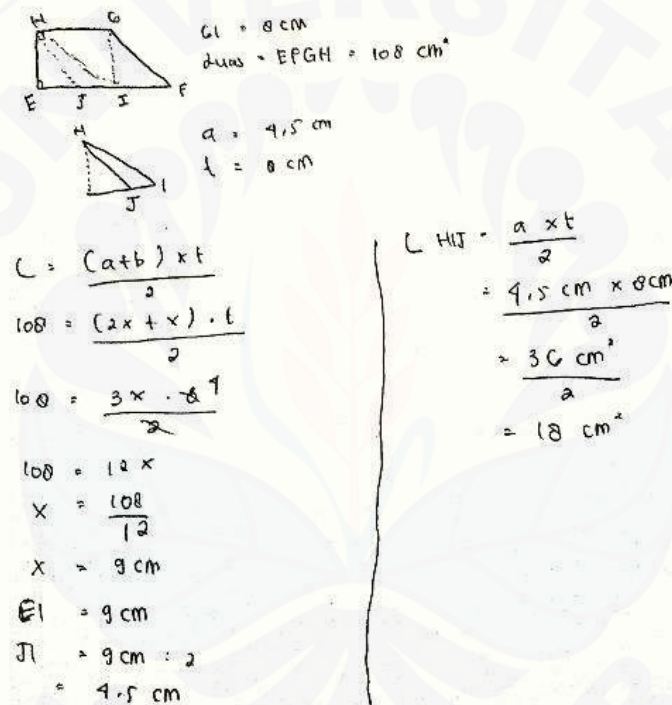 H G
E J I F
GI = 8 cm
Luas = EFGH = 108 cm²
H
J I
a = 4,5 cm
t = 8 cm
L = (a+b) x t / 2
108 = (2x + x) . t / 2
108 = 3x . 8 4 / 2
108 = 12 x
x = 108 / 12
x = 9 cm
EI = 9 cm
JI = 9 cm : 2
= 4,5 cm
L HIJ = a x t / 2
= 4,5 cm x 8 cm / 2
= 36 cm² / 2
= 18 cm²